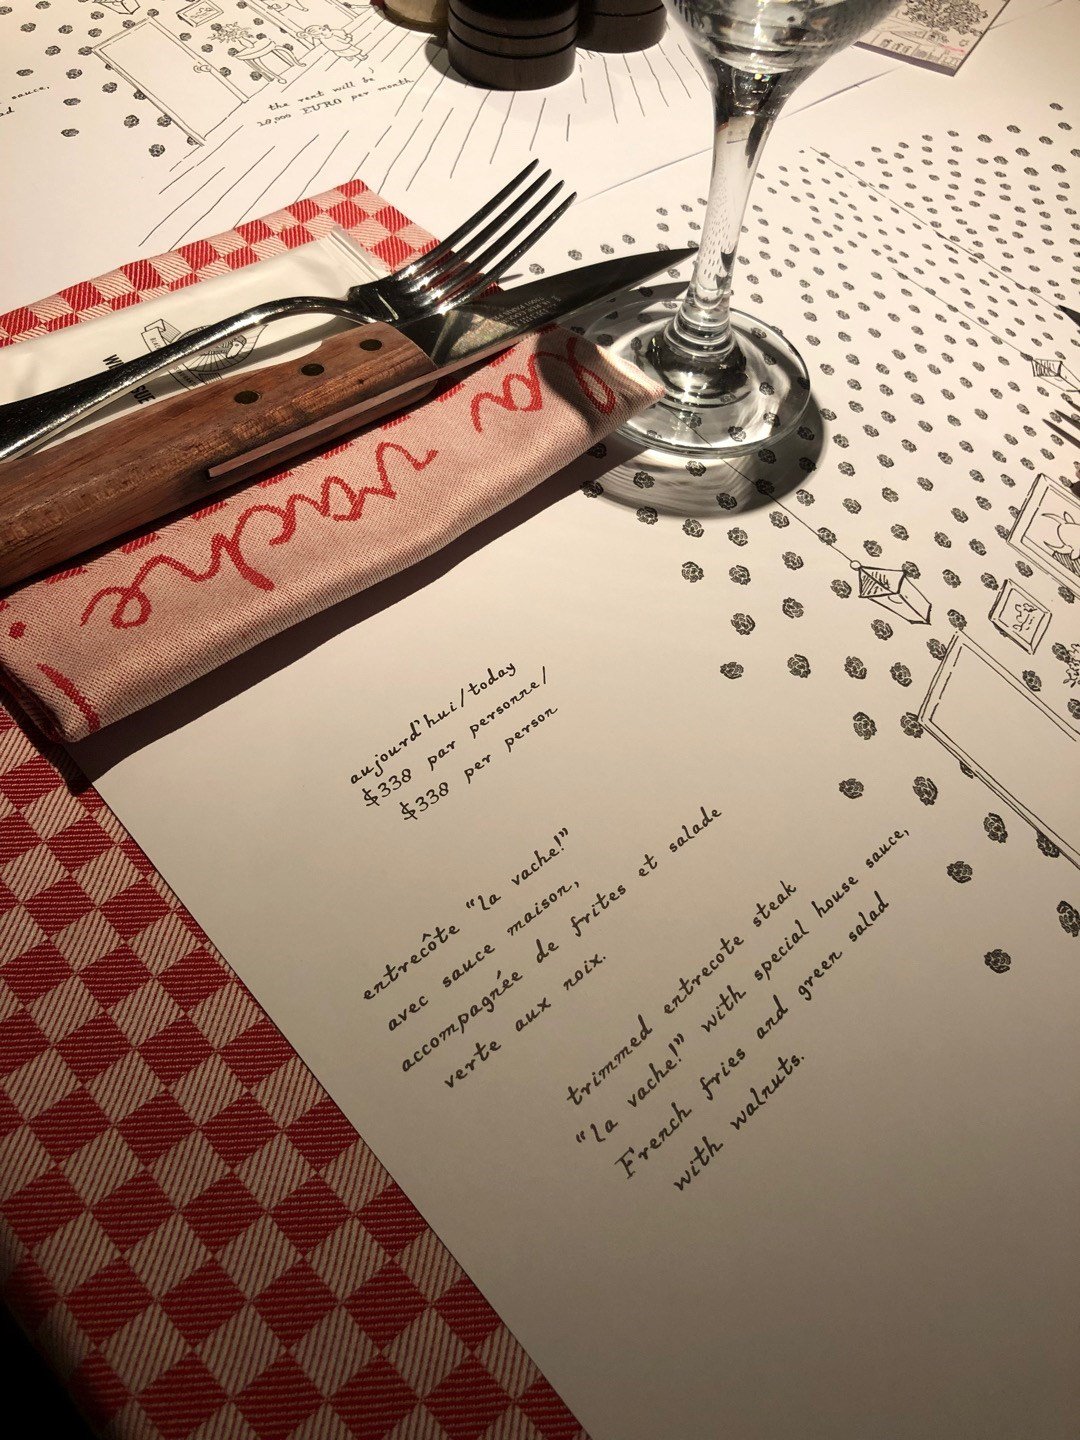 sauce,
the rent will be
18,000 EURO per month
la vache!
aujourd'hui/today
$338 par personne/
$338 per person
entrecôte "la vache!"
avec sauce maison,
accompagnée de frites et salade
verte aux noix.
trimmed entrecote steak
"la vache!" with special house sauce,
French fries and green salad
with walnuts.